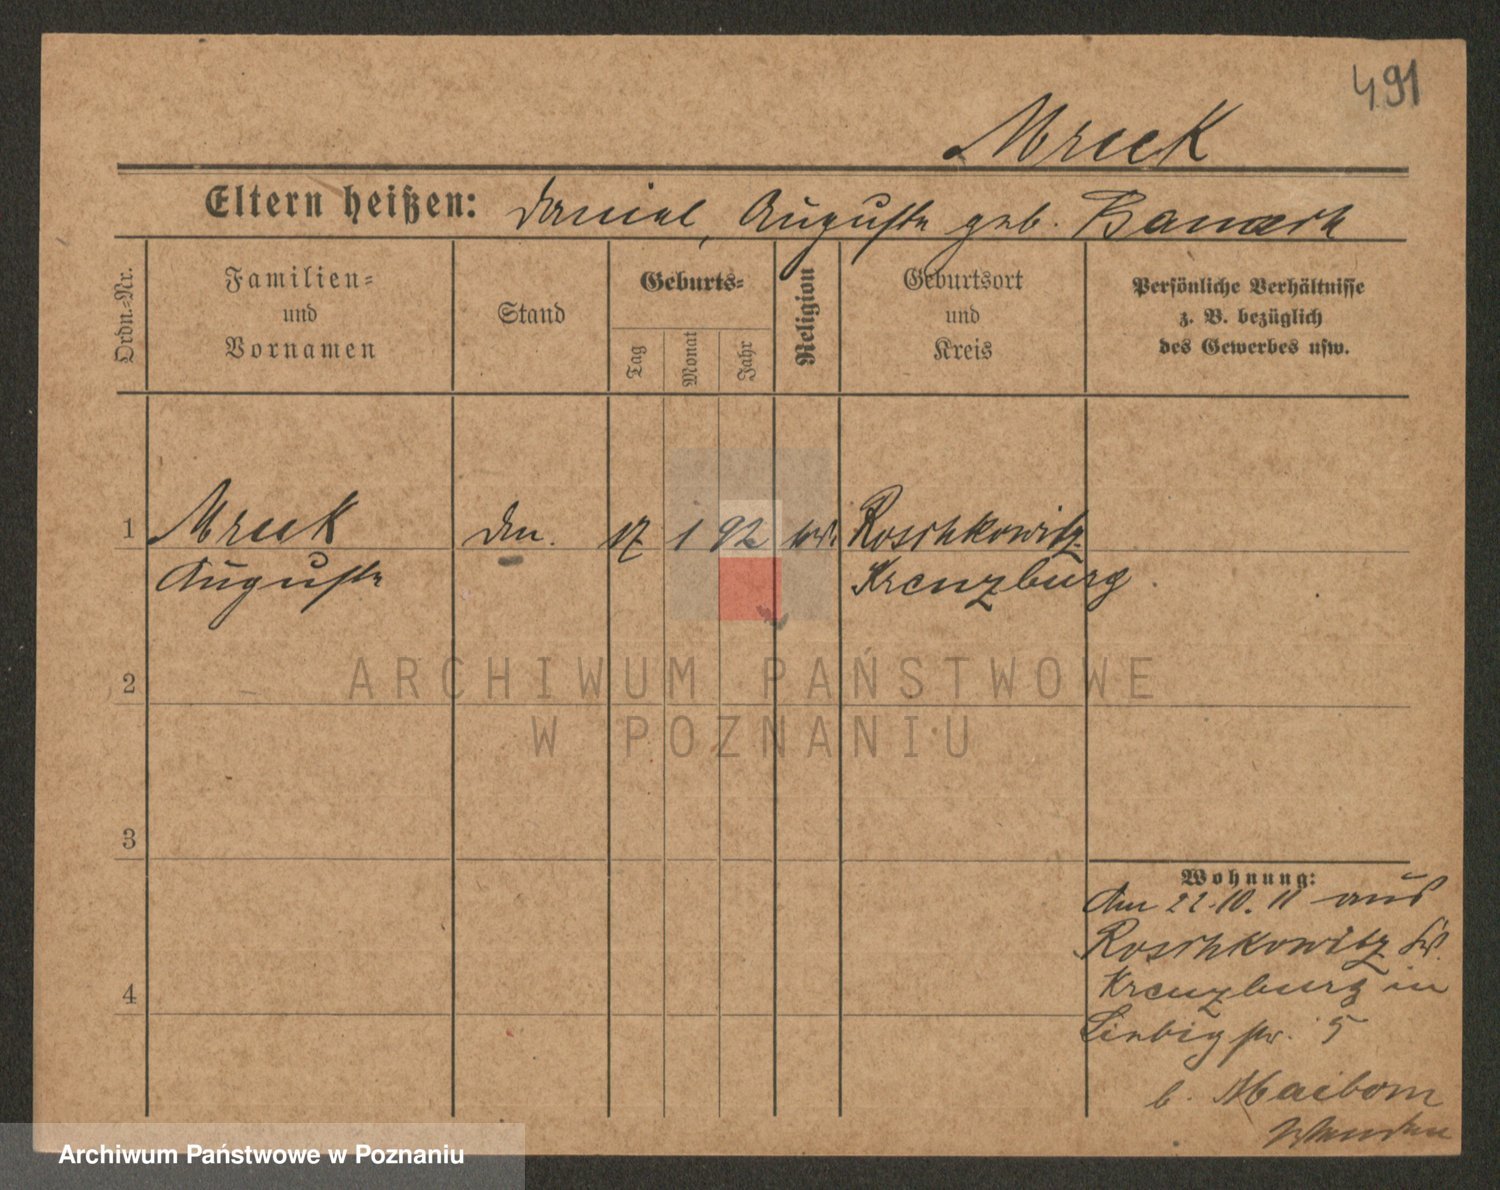 491
Mreek
Eltern heißen: Daniel, Auguste geb.
Ordn.-Nr.
Familien-
und
Vornamen
Stand
Geburts-
Tag
Monat
Jahr
Religion
Geburtsort
und
Kreis
Persönliche Verhältnisse
z. B. bezüglich
des Gewerbes usw.
1 Mreek 17 1 92 Roschkowitz
Auguste Kreuzburg
ARCHIWUM PAŃSTWOWE
W POZNANIU
2
3
4
Wohnung:
Am 22.10.11 aus
Roschkowitz Kr.
Kreuzburg in
Liebigstr. 5
b. Maibom
Archiwum Państwowe w Poznaniu